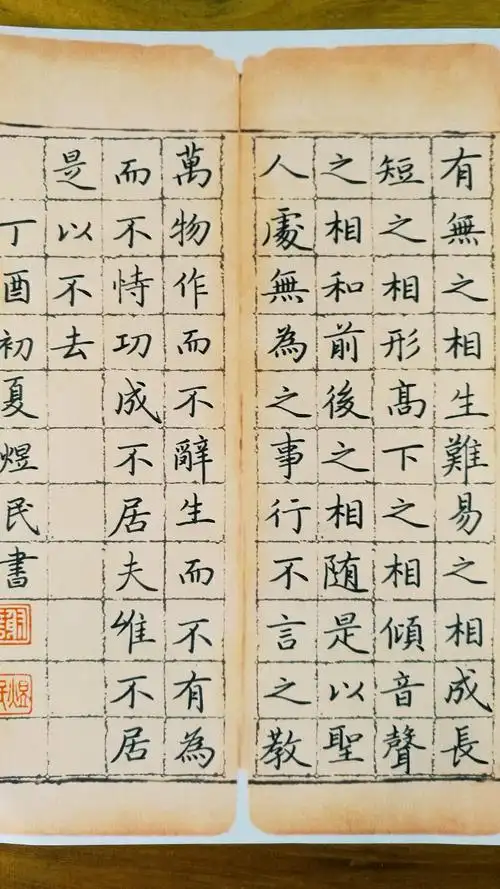 有無之相生難易之相成長
短之相形高下之相傾音聲
之相和前後之相随是以聖
人處無為之事行不言之教
萬物作而不辭生而不有為
而不恃功成不居夫惟不居
是以不去
丁酉初夏煜民書